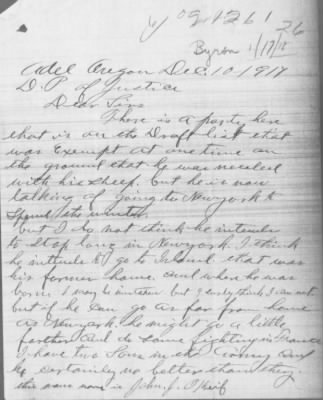 Byron 1/17/18
Adel Oregon Dec. 10. 1917
D. P of Justice
Dear Sirs
There is a party here
that is on the Draft list that
was Exempt at one time on
the ground that he was needed
with his sheep. but he is now
talking of going to New york to
Spend the winter.
but I do not think he intends
to stop long in New york. I think
he intends to go to Ireland. that was
his former home. and where he was
born. I may be mistaken but I surely think I am not
but if he can go as far from home
as New york. he might go a little
farther and do some fighting in France
I have two Sons in the army and
he certainly no better than they.
this mans name is John. J. O Keif